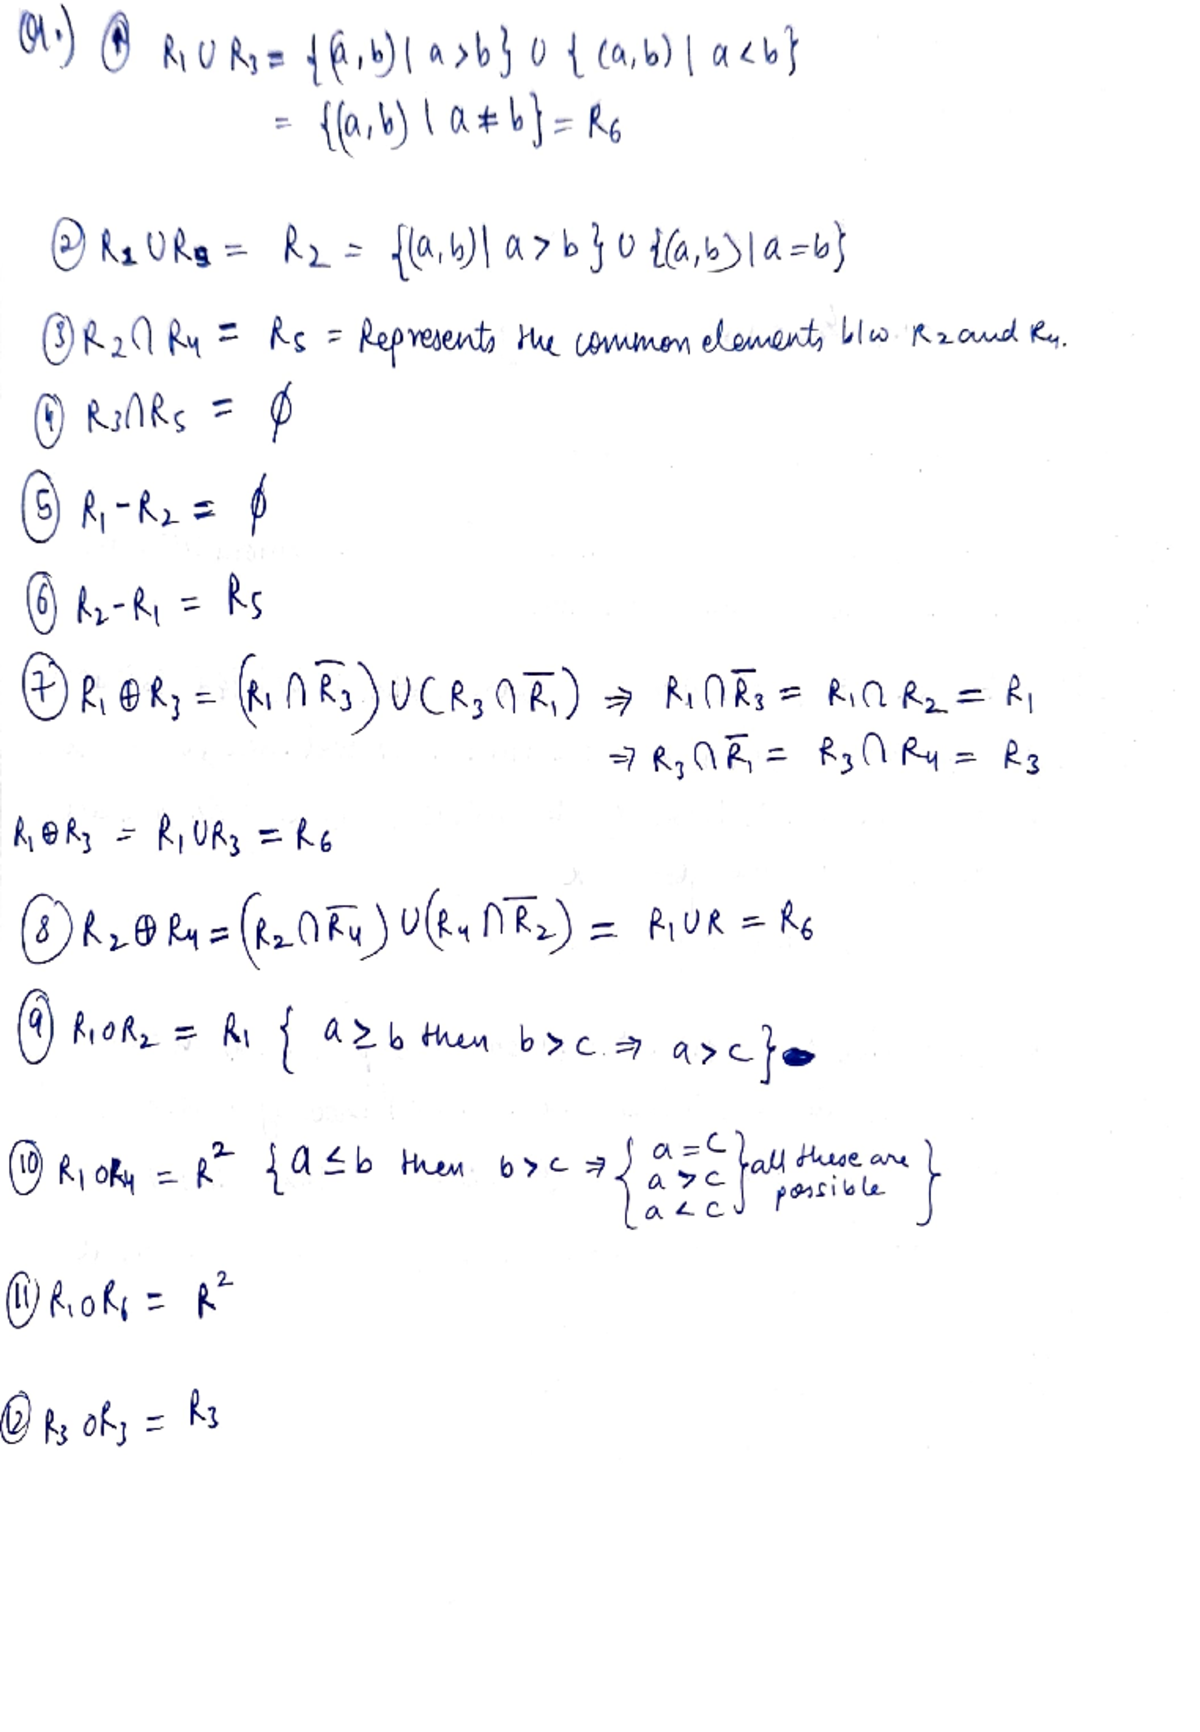 Q1.) ① R₁ ∪ R₃ = {(a,b) | a>b} ∪ {(a,b) | a<b}
= {(a,b) | a ≠ b} = R₆
② R₁ ∪ R₅ = R₂ = {(a,b) | a>b} ∪ {(a,b) | a=b}
③ R₂ ∩ R₄ = R₅ = Represents the common elements b/w R₂ and R₄.
④ R₃∩R₅ = ϕ
⑤ R₁-R₂ = ϕ
⑥ R₂-R₁ = R₅
⑦ R₁ ⊕ R₃ = (R₁ ∩ R̅₃) ∪ (R₃ ∩ R̅₁) ⇒ R₁ ∩ R̅₃ = R₁ ∩ R₂ = R₁
⇒ R₃ ∩ R̅₁ = R₃ ∩ R₄ = R₃
R₁ ⊕ R₃ = R₁ ∪ R₃ = R₆
⑧ R₂ ⊕ R₄ = (R₂ ∩ R̅₄) ∪ (R₄ ∩ R̅₂) = R₁ ∪ R = R₆
⑨ R₁oR₂ = R₁ { a ≥ b then b > c. ⇒ a > c }
⑩ R₁oR₄ = R² { a ≤ b then b > c ⇒ { a = c } all these are }
a > c possible
a < c
⑪ R₁oR₆ = R²
⑫ R₃ oR₃ = R₃